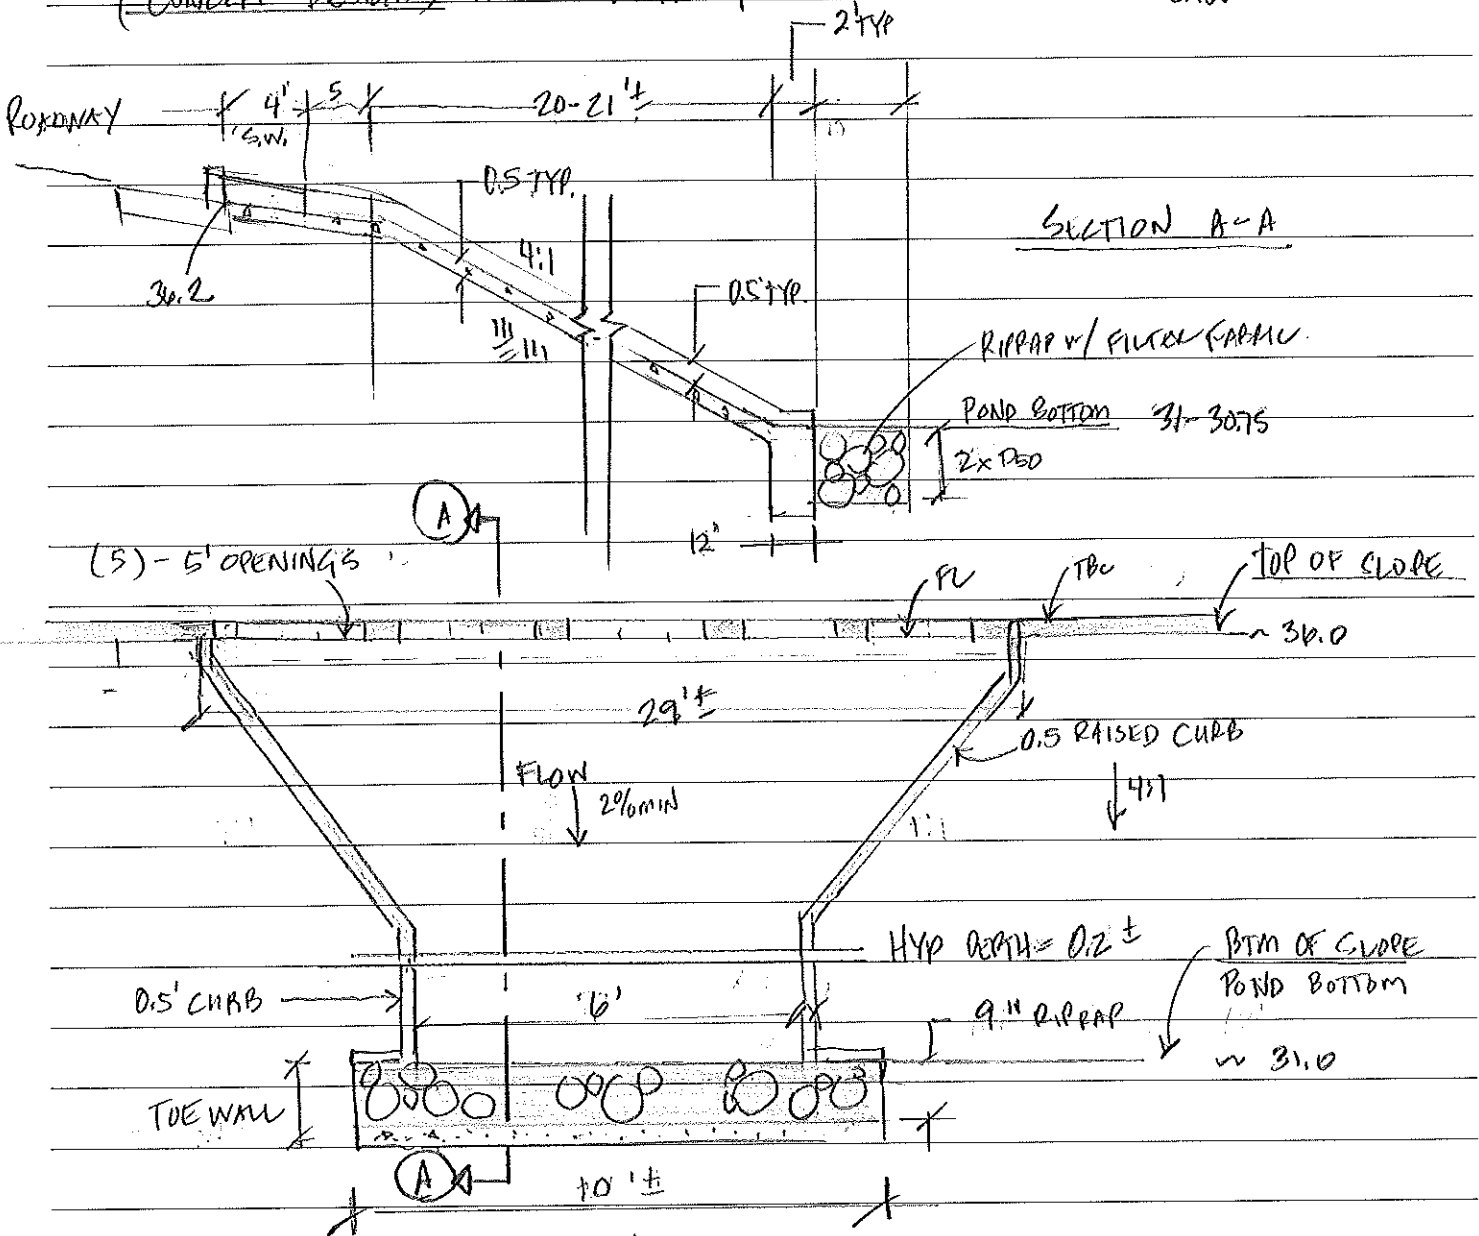 (CONCEPT
2' TYP
ROADWAY
4'
5
20-21'±
S.W.
10
0.5 TYP.
SECTION A-A
4:1
36.2
0.5' TYP.
RIPRAP w/ FILTER FABRIC
POND BOTTOM 31-30.75
2x D50
A
12"
(5) - 5' OPENINGS
FL
TBC
TOP OF SLOPE
~ 36.0
29'±
0.5 RAISED CURB
FLOW
2% MIN
4:1
1:1
HYD DEPTH = 0.2±
BTM OF SLOPE
POND BOTTOM
0.5' CURB
6'
9" RIPRAP
~ 31.0
TOE WALL
A
10'±